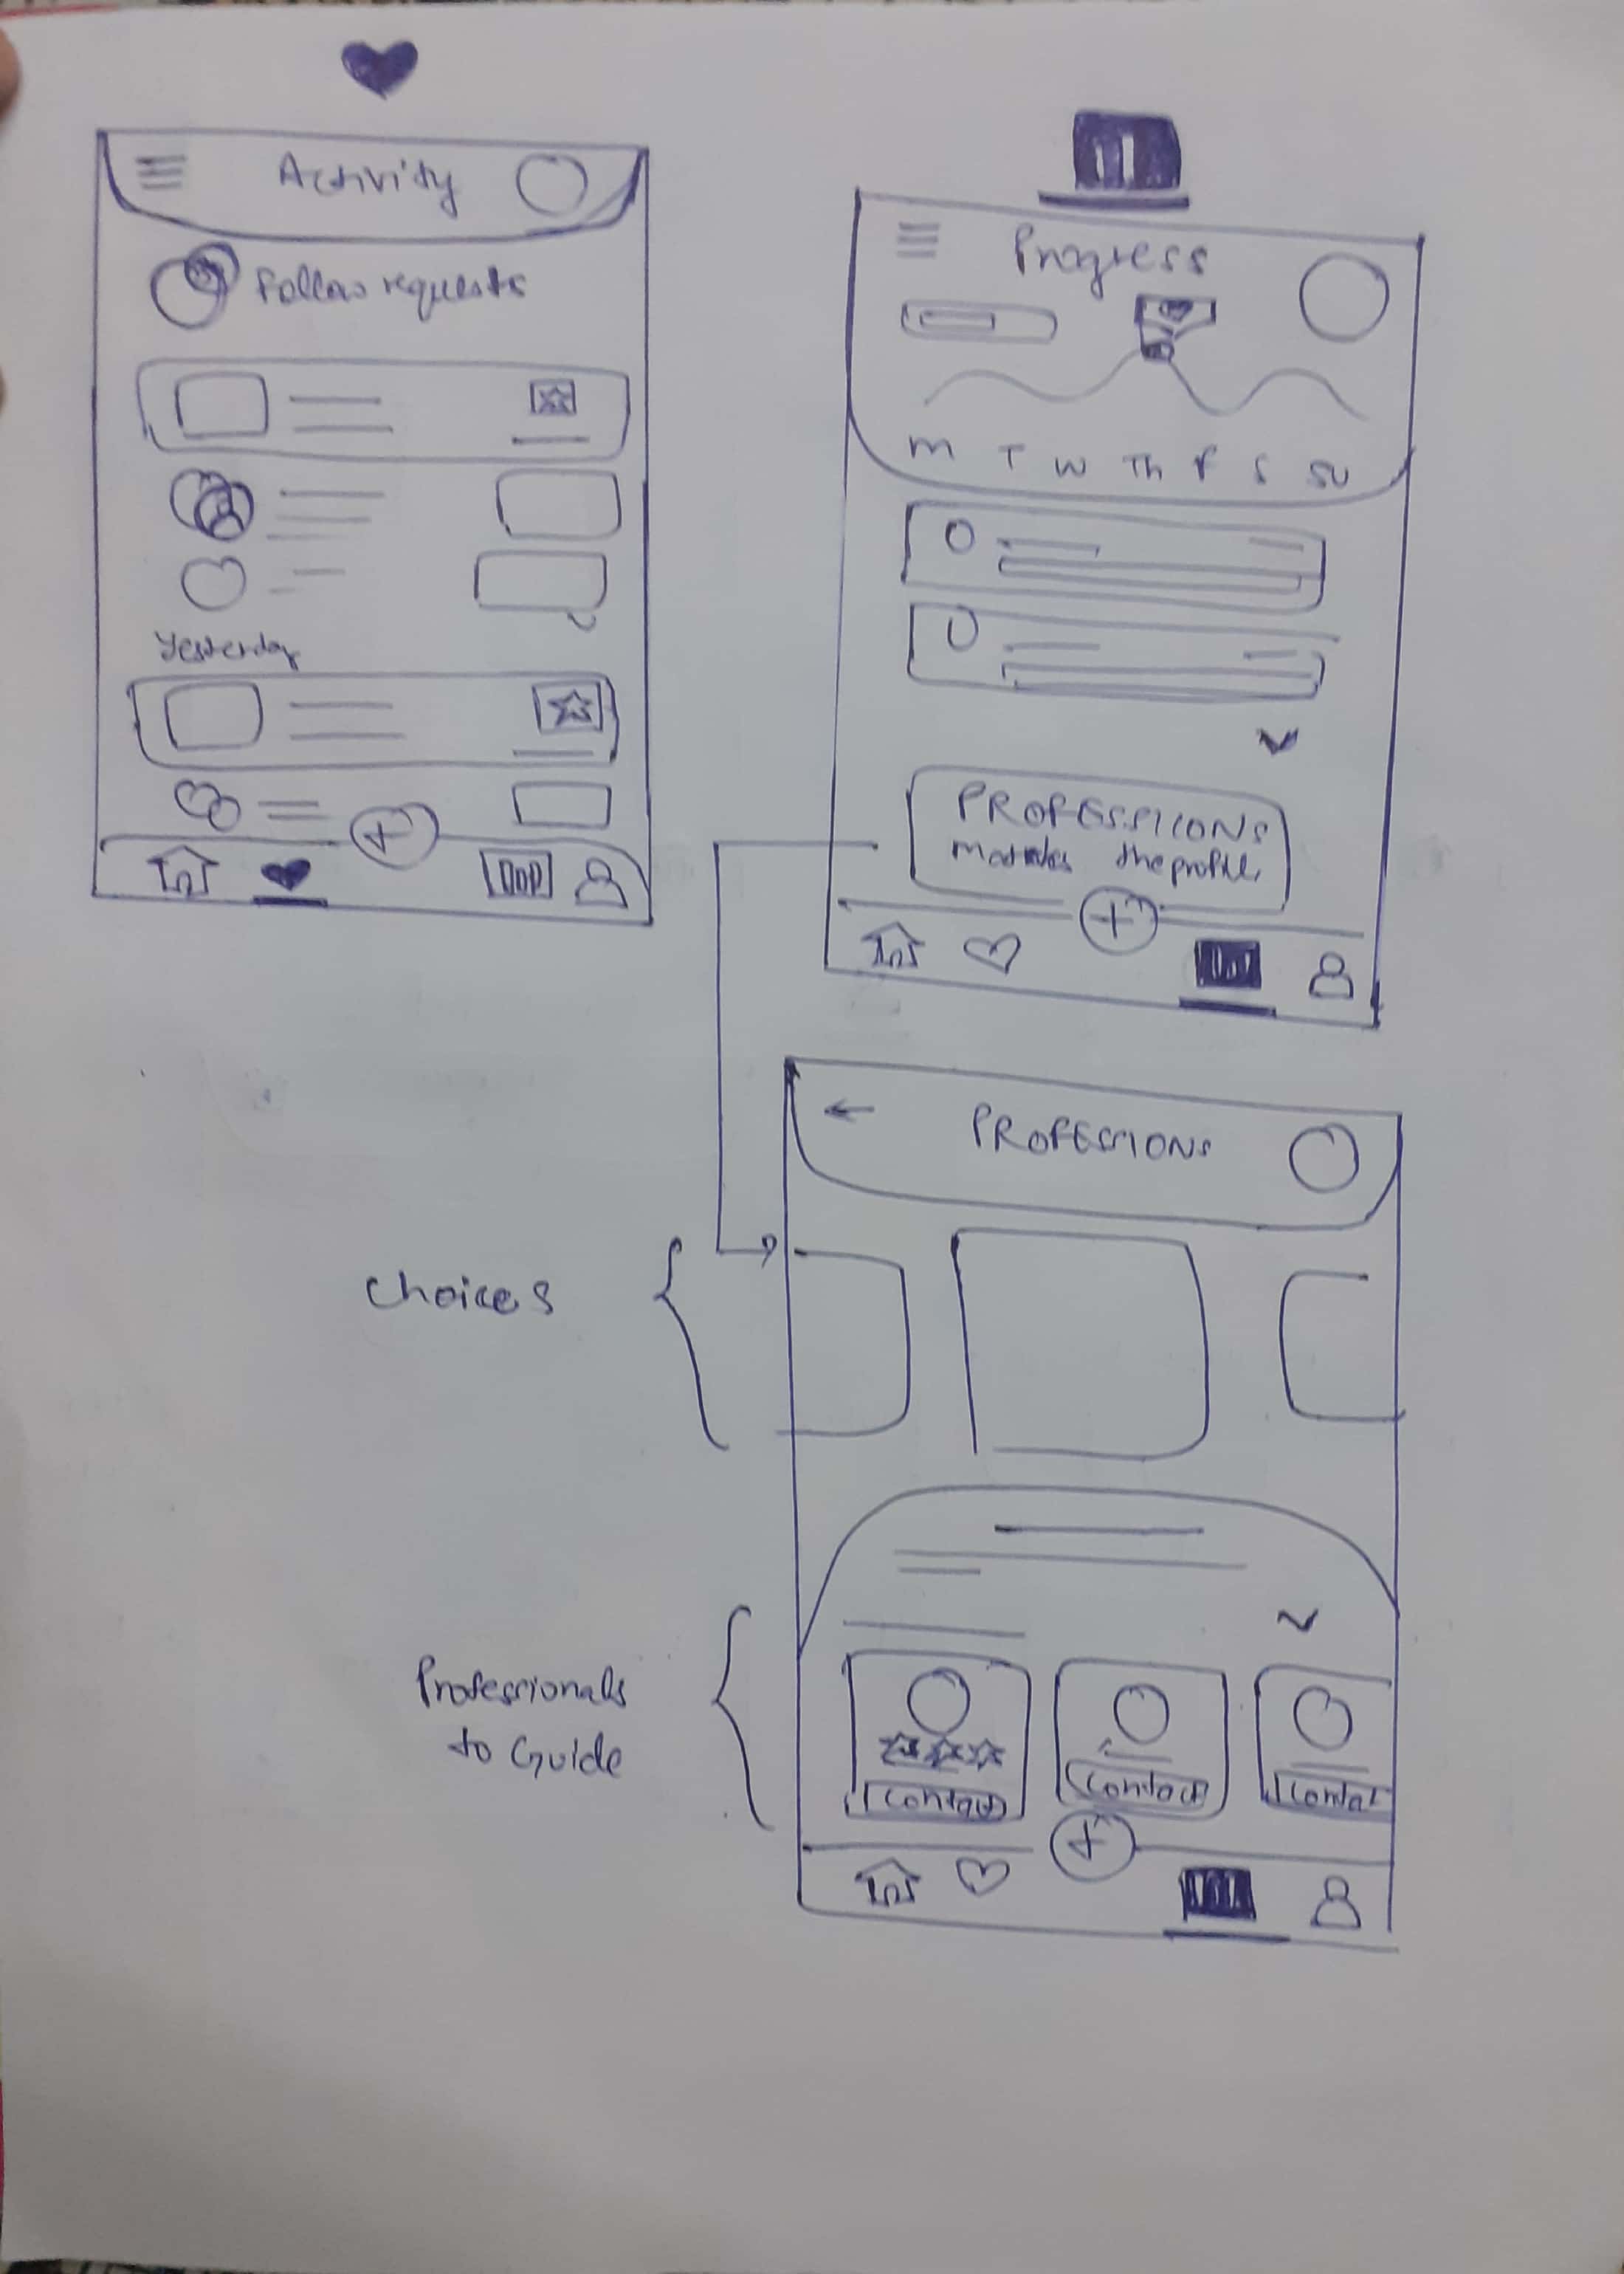 Activity
Follow requests
Yesterday
Progress
M T W Th F S SU
PROFESSIONS
matches the profile
PROFESSIONS
Choices
Professionals
to Guide
Contact
Contact
Contac